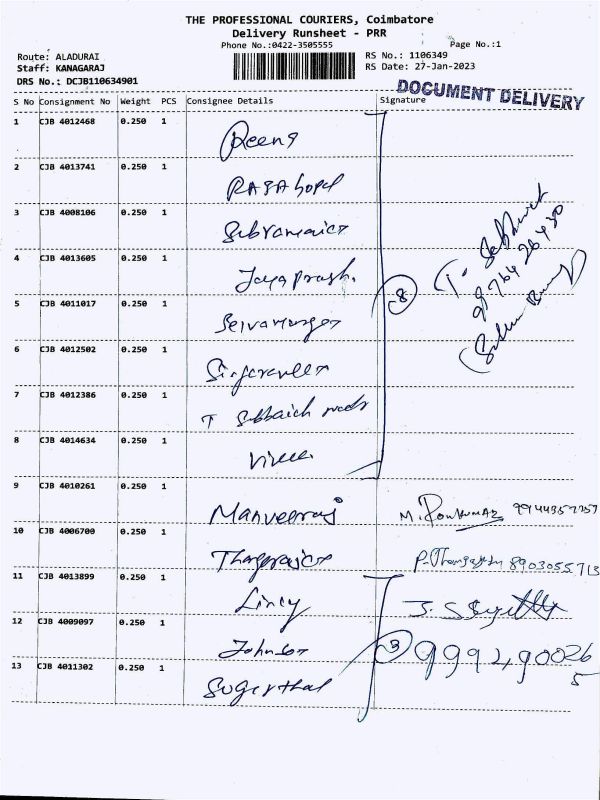 THE PROFESSIONAL COURIERS, Coimbatore
Delivery Runsheet - PRR
Phone No.:0422-3505555
Page No.:1
Route: ALADURAI
RS No.: 1106349
Staff: KANAGARAJ
RS Date: 27-Jan-2023
DRS No.: DCJB110634901
DOCUMENT DELIVERY
S No Consignment No Weight PCS Consignee Details Signature
1 CJB 4012468 0.250 1 Reena
2 CJB 4013741 0.250 1 RAJA Gopal
3 CJB 4008106 0.250 1
4 CJB 4013605 0.250 1 Jaya Prash.
5 CJB 4011017 0.250 1 Selvamurugan
6 CJB 4012502 0.250 1
7 CJB 4012386 0.250 1 T
8 CJB 4014634 0.250 1
8
9 CJB 4010261 0.250 1 Manveeraj
10 CJB 4006700 0.250 1 8903055713
11 CJB 4013899 0.250 1 Lincy
12 CJB 4009097 0.250 1 Johnson
3
13 CJB 4011302 0.250 1